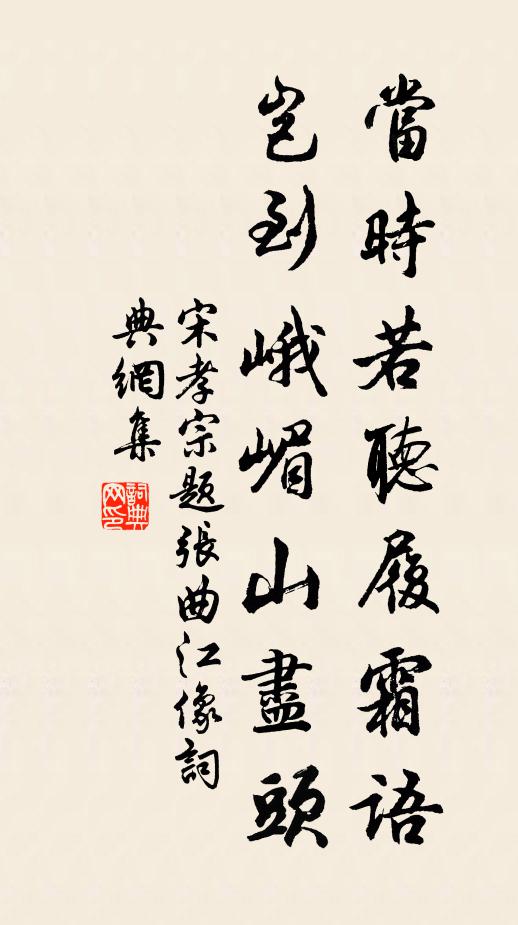 當時若聽履霜語
豈到峨嵋山盡頭
宋孝宗題張曲江像詞
典網集
詞典
网印